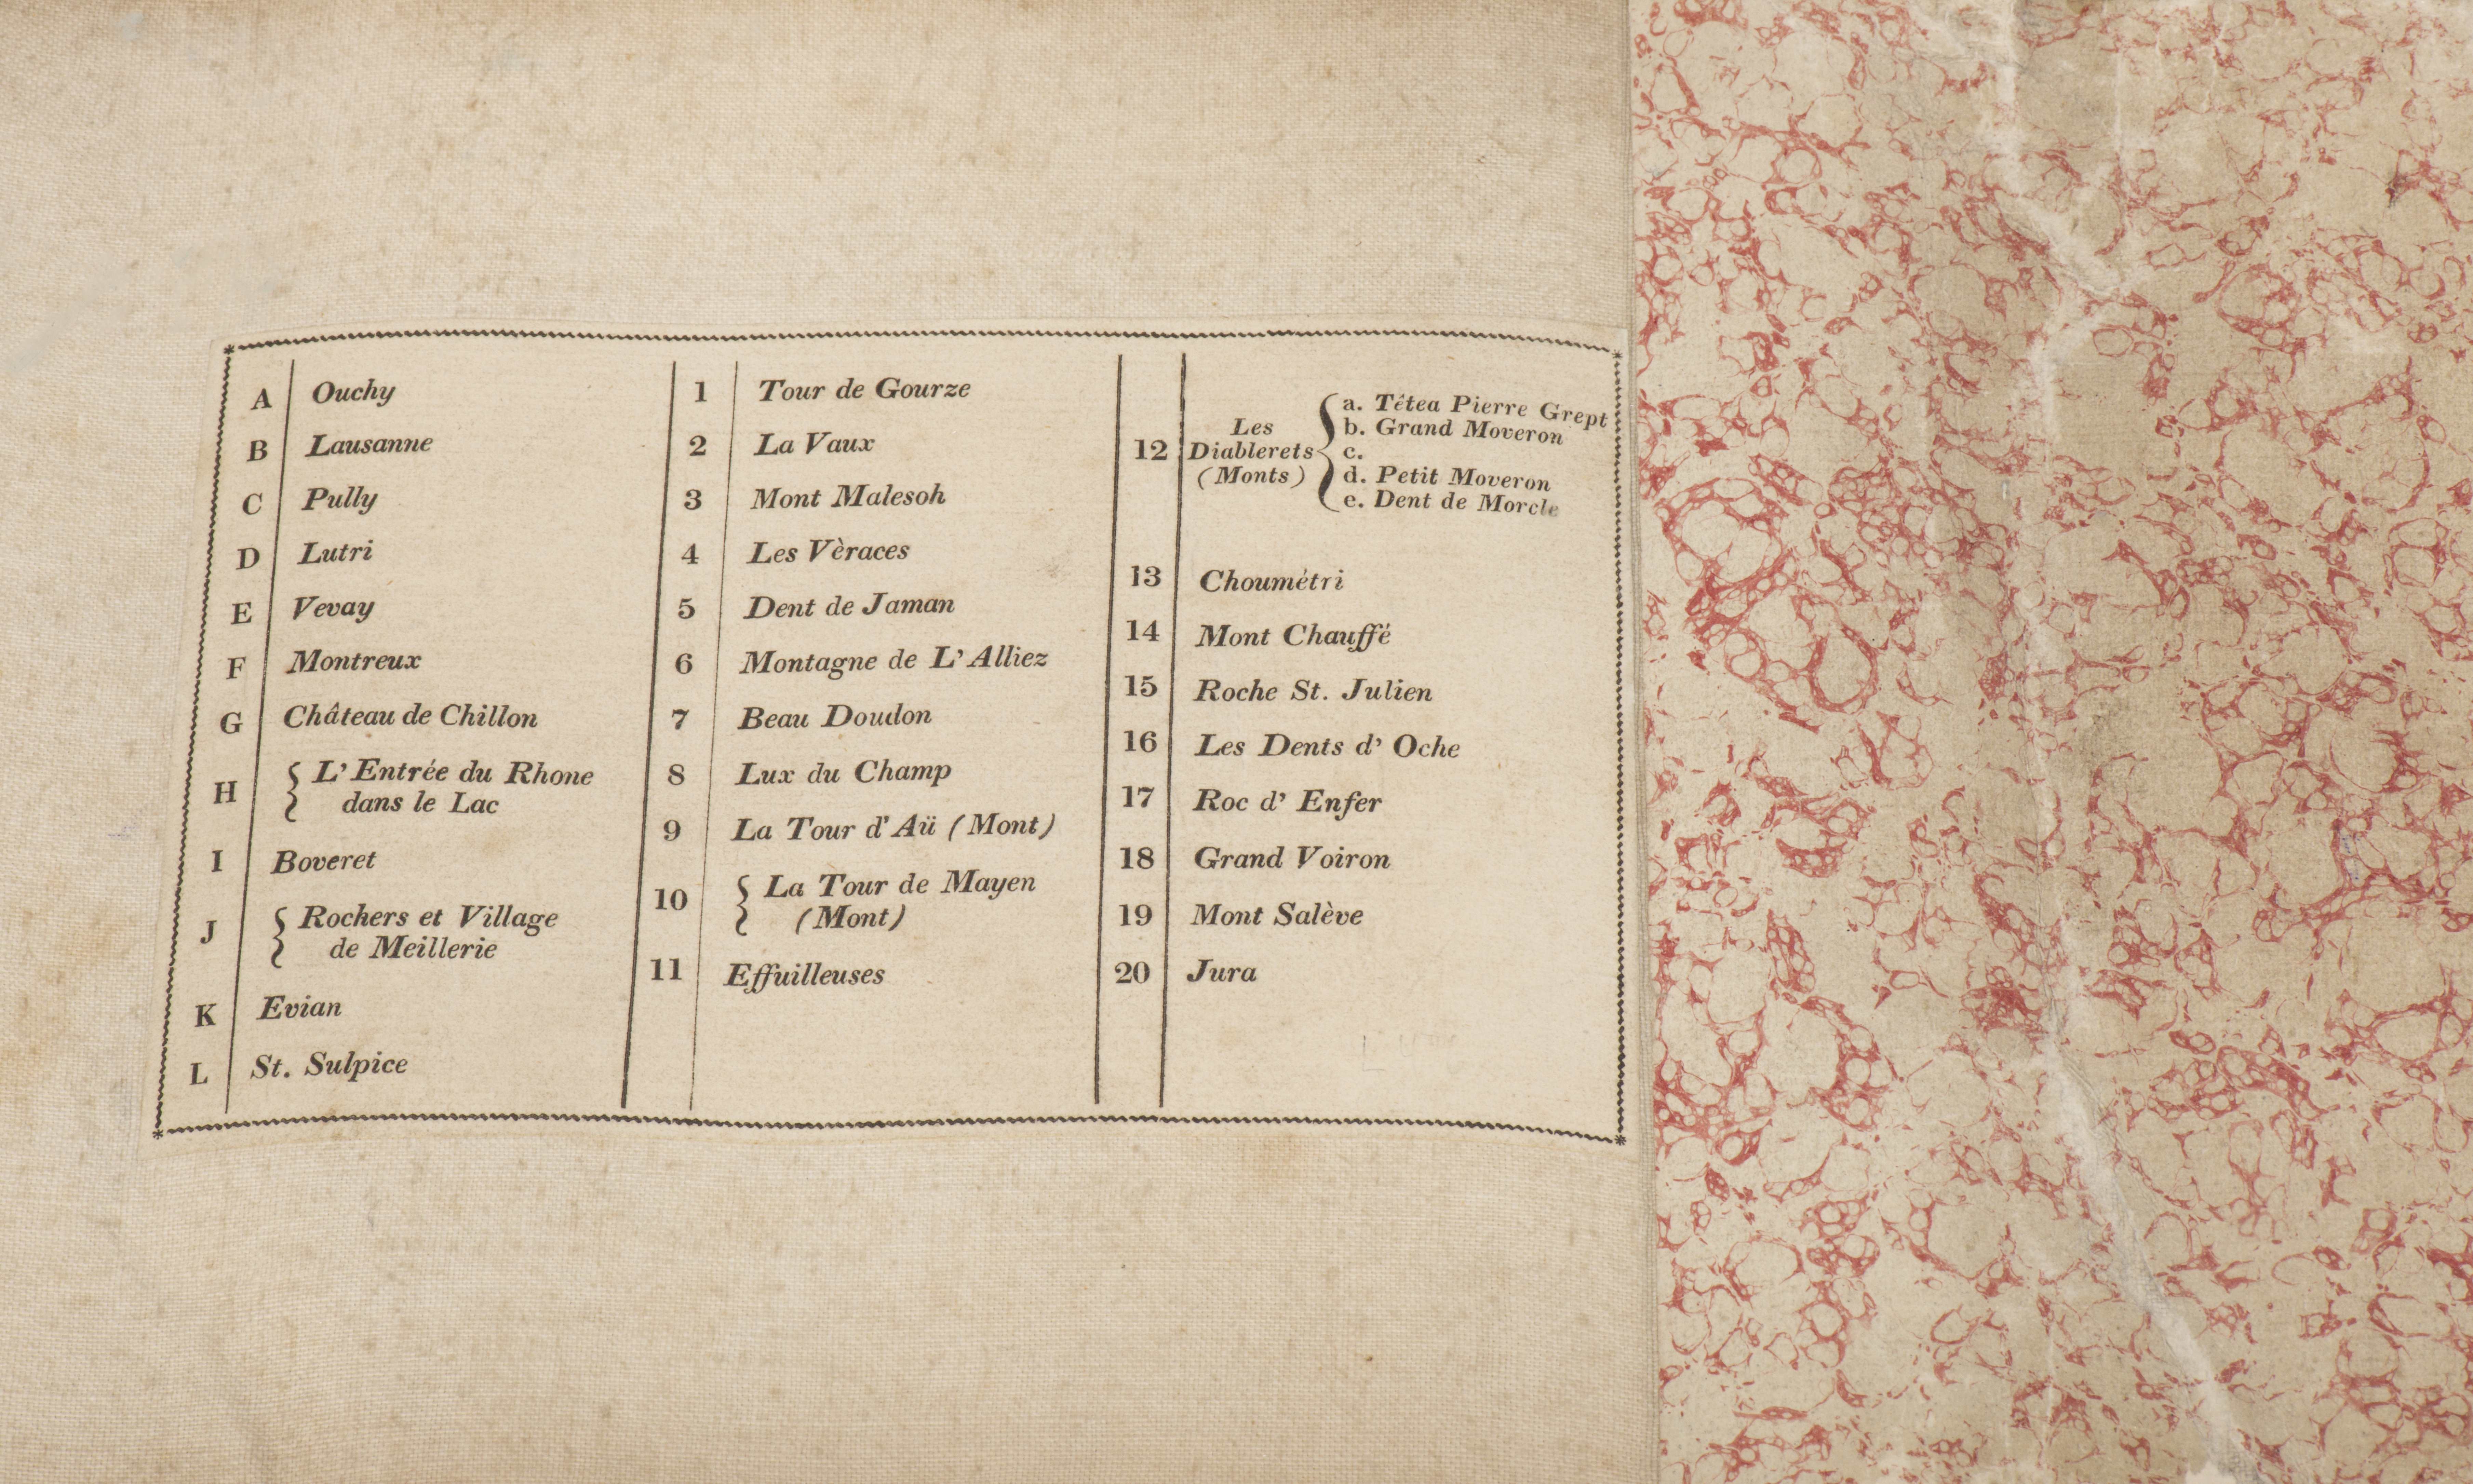 A Ouchy
B Lausanne
C Pully
D Lutri
E Vevay
F Montreux
G Château de Chillon
H { L' Entrée du Rhone
dans le Lac
I Boveret
J { Rochers et Village
de Meillerie
K Evian
L St. Sulpice
1 Tour de Gourze
2 La Vaux
3 Mont Malesoh
4 Les Vèraces
5 Dent de Jaman
6 Montagne de L' Alliez
7 Beau Doudon
8 Lux du Champ
9 La Tour d' Aü (Mont)
10 { La Tour de Mayen
(Mont)
11 Effuilleuses
12 Les
Diablerets
(Monts)
a. Têtea Pierre Grept
b. Grand Moveron
c.
d. Petit Moveron
e. Dent de Morcle
13 Choumétri
14 Mont Chauffé
15 Roche St. Julien
16 Les Dents d' Oche
17 Roc d' Enfer
18 Grand Voiron
19 Mont Salève
20 Jura